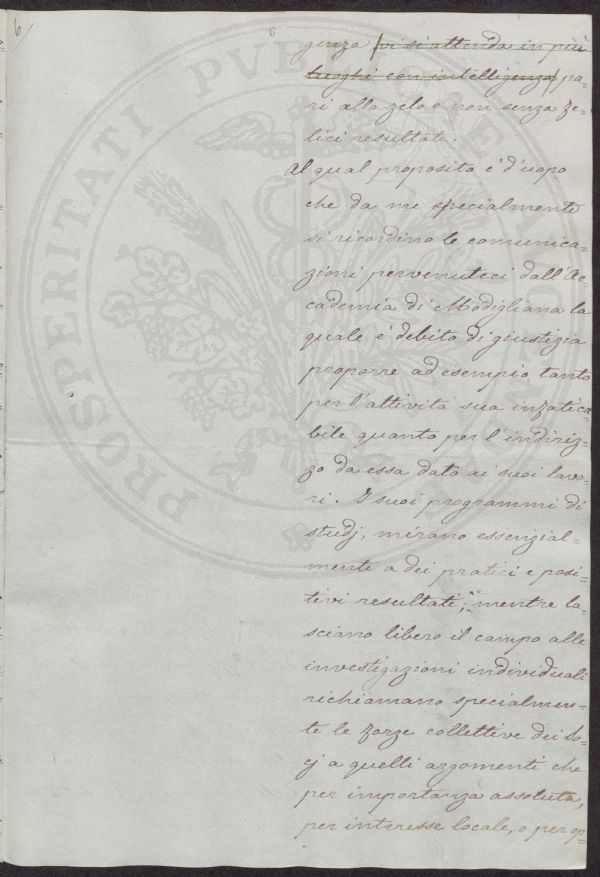 6
6
genza (vi si attenda in più
luoghi con intelligenza) pa-
ri allo zelo e non senza fe-
lici resultati.
Al qual proposito è d'uopo
che da me specialmente
si ricordino le comunica-
zioni pervenuteci dall'Ac
cademia di Modigliana la
quale è debito di giustizia
proporre ad esempio tanto
per l'attività sua infatica-
bile quanto per l'indiriz-
zo da essa dato ai suoi lavo-
ri. I suoi programmi di
studj, mirano essenzial-
mente a dei pratici e posi-
tivi resultati; mentre la-
sciano libero il campo alle
investigazioni individuali
richiamano specialmen-
te le forze collettive dei So-
cj a quelli argomenti che
per importanza assoluta,
per interesse locale, o per op-
PROSPERITATI PVBLICAE